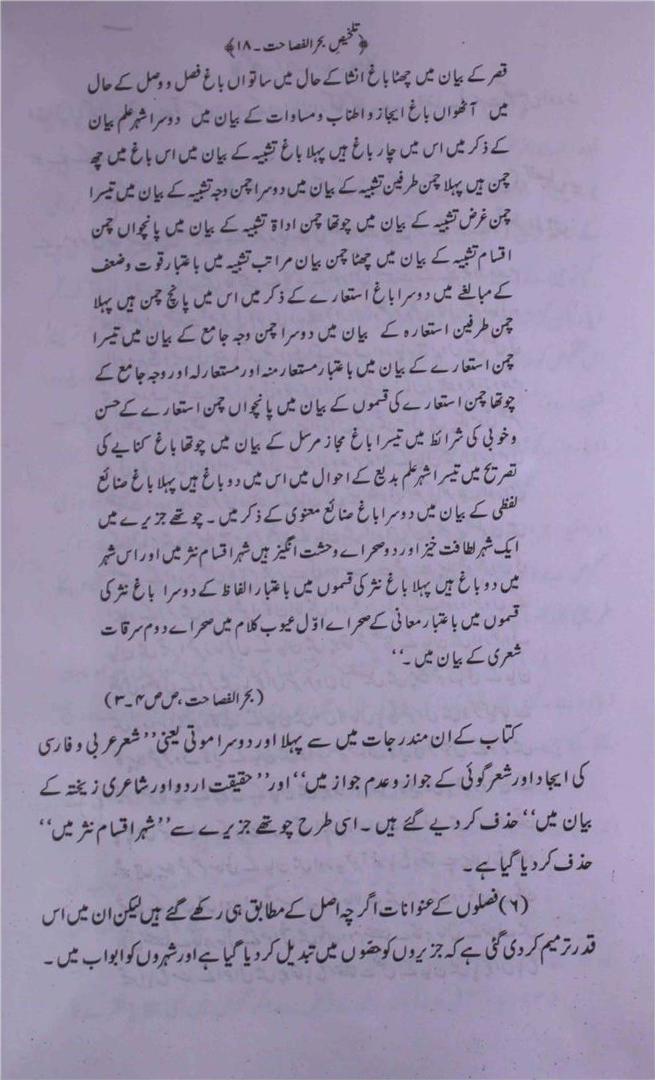 ﴿تلخیص بحر الفصاحت ۔ ۱۸﴾
قصر کے بیان میں چھٹا باغ انشا کے حال میں ساتواں باغ فصل و وصل کے حال
میں آٹھواں باغ ایجاز و اطناب و مساوات کے بیان میں دوسرا شہر علم بیان
کے ذکر میں اس میں چار باغ ہیں پہلا باغ تشبیہ کے بیان میں اس باغ میں چھ
چمن ہیں پہلا چمن طرفین تشبیہ کے بیان میں دوسرا چمن وجہ تشبیہ کے بیان میں تیسرا
چمن غرض تشبیہ کے بیان میں چوتھا چمن اداۃ تشبیہ کے بیان میں پانچواں چمن
اقسام تشبیہ کے بیان میں چھٹا چمن بیان مراتب تشبیہ میں باعتبار قوت و ضعف
کے مبالغے میں دوسرا باغ استعارے کے ذکر میں اس میں پانچ چمن ہیں پہلا
چمن طرفین استعارہ کے بیان میں دوسرا چمن وجہ جامع کے بیان میں تیسرا
چمن استعارے کے بیان میں باعتبار مستعار منہ اور مستعار لہ اور وجہ جامع کے
چوتھا چمن استعارے کی قسموں کے بیان میں پانچواں چمن استعارے کے حسن
و خوبی کی شرائط میں تیسرا باغ مجاز مرسل کے بیان میں چوتھا باغ کنایے کی
تصریح میں تیسرا شہر علم بدیع کے احوال میں اس میں دو باغ ہیں پہلا باغ صنائع
لفظی کے بیان میں دوسرا باغ صنائع معنوی کے ذکر میں ۔ چوتھے جزیرے میں
ایک شہر لطافت خیز اور دو صحراے وحشت انگیز ہیں شہر اقسام نثر میں اور اس شہر
میں دو باغ ہیں پہلا باغ نثر کی قسموں میں باعتبار الفاظ کے دوسرا باغ نثر کی
قسموں میں باعتبار معانی کے صحراے اوّل عیوب کلام میں صحراے دوم سرقات
شعری کے بیان میں ۔‘‘
(بحر الفصاحت ، ص ص ۴۔۳)
کتاب کے ان مندرجات میں سے پہلا اور دوسرا موتی یعنی ’’شعر عربی و فارسی
کی ایجاد اور شعر گوئی کے جواز و عدم جواز میں‘‘ اور ’’حقیقت اردو اور شاعری ریختہ کے
بیان میں‘‘ حذف کر دیے گئے ہیں ۔ اسی طرح چوتھے جزیرے سے ’’شہر اقسام نثر میں‘‘
حذف کر دیا گیا ہے ۔
(۶) فصلوں کے عنوانات اگرچہ اصل کے مطابق ہی رکھے گئے ہیں لیکن ان میں اس
قدر ترمیم کر دی گئی ہے کہ جزیروں کو حصّوں میں تبدیل کر دیا گیا ہے اور شہروں کو ابواب میں ۔